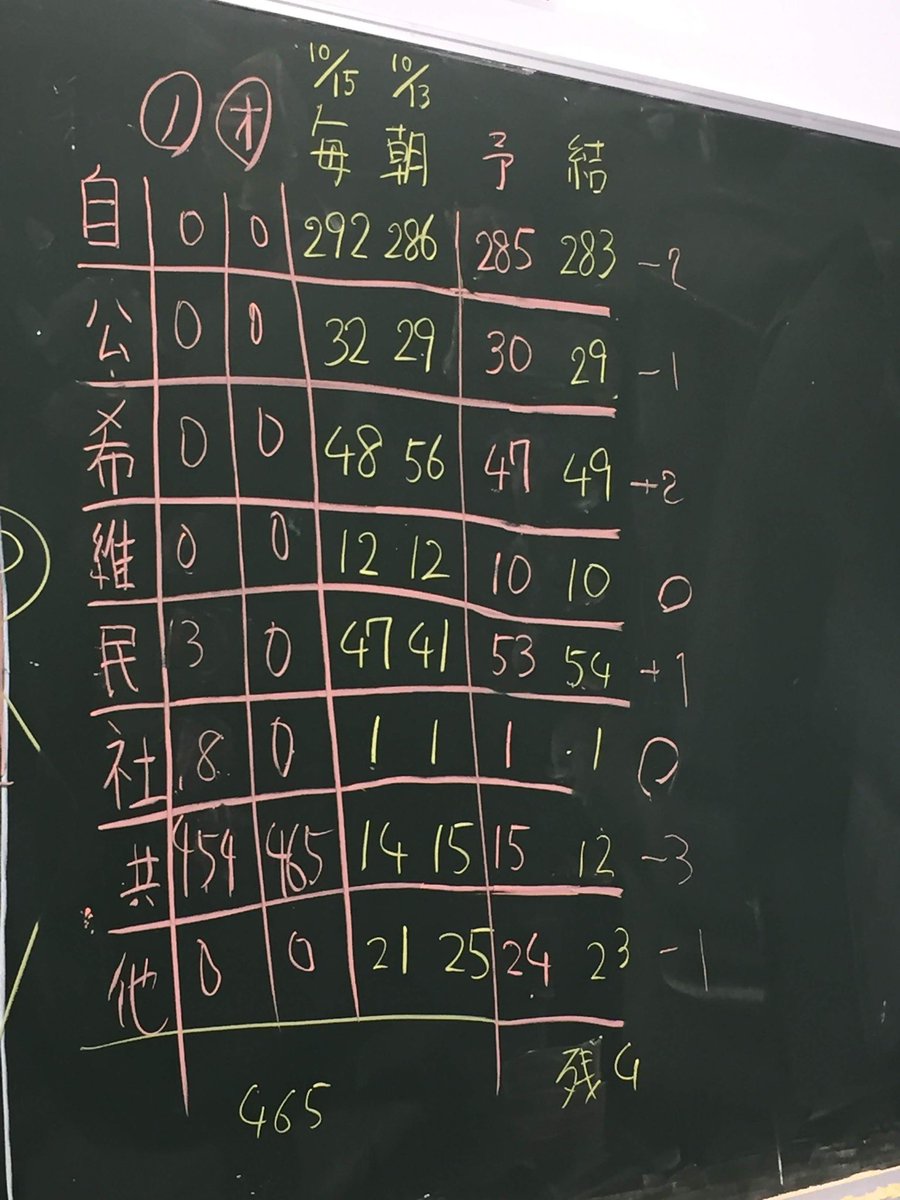 10/15 10/13
ノ オ 毎 朝 予 結
自 0 0 292 286 285 283 -2
公 0 0 32 29 30 29 -1
希 0 0 48 56 47 49 +2
維 0 0 12 12 10 10 0
民 3 0 47 41 53 54 +1
社 8 0 1 1 1 1 0
共 454 465 14 15 15 12 -3
他 0 0 21 25 24 23 -1
465 残4